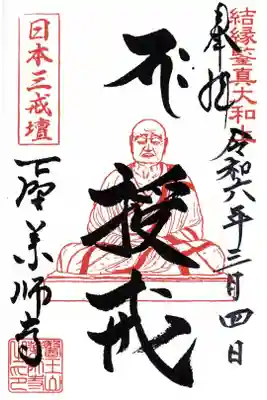 結縁鑒真大和上
奉拝
令和六年三月四日
授戒
日本三戒壇
下野薬師寺